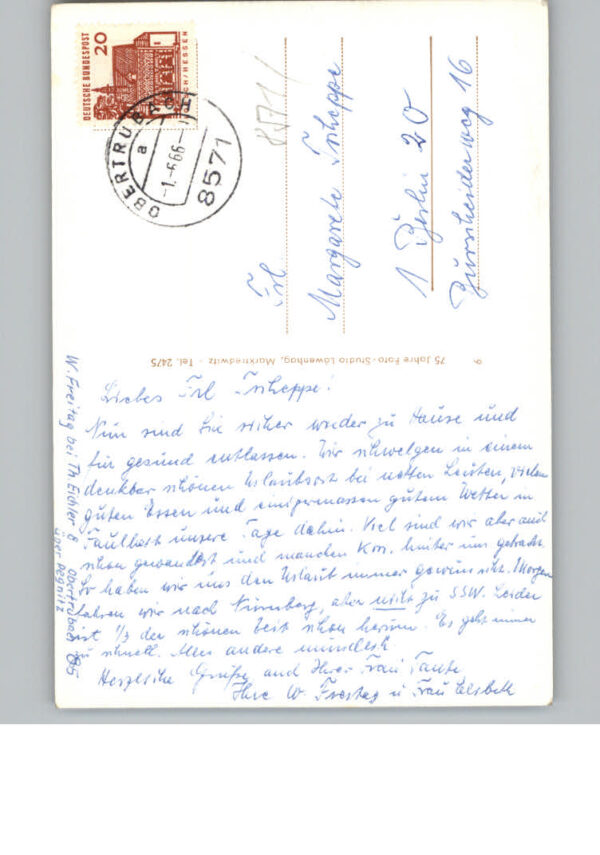 DEUTSCHE BUNDESPOST
20
CH/HESSEN
OBERTRUBACH
a
-1.-6.66-
8571
8571
Frl.
Margarete Tscheppe
1 Berlin 20
Burscheiderweg 16
75 Jahre Foto-Studio Löwenhag, Marktredwitz - Tel. 2475
Liebes Frl Tscheppe!
Nun sind Sie sicher wieder zu Hause und
für gesund entlassen. Wir schwelgen in einem
denkbar schönen Urlaubsort bei netten Leuten, vielen
guten Essen und einigermassen gutem Wetter in
Faulheit unsere Tage dahin. Viel sind wir aber auch
schon gewandert und manchen Km. hinter uns gebracht.
So haben wir uns den Urlaub immer gewünscht. Morgen
fahren wir nach Nürnberg, aber nicht zu SSW. Leider
ist 1/3 der schönen Zeit schon herum. Es geht immer
zu schnell. Alles andere mündlich.
Herzliche Grüße auch Ihrer Frau Tante
Ihre W. Freitag u Frau Elsbeth
W. Freitag bei Th Eichler 8 Obertrubach 85
über Pegnitz